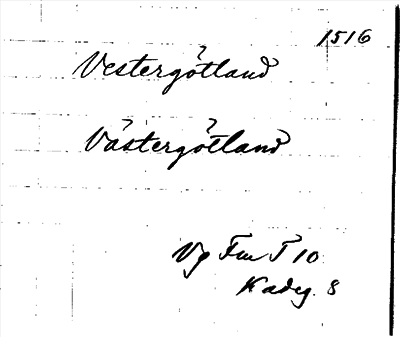 1516
Vestergötland
Västergötland
Vg Fm T 10
Kadig. 8